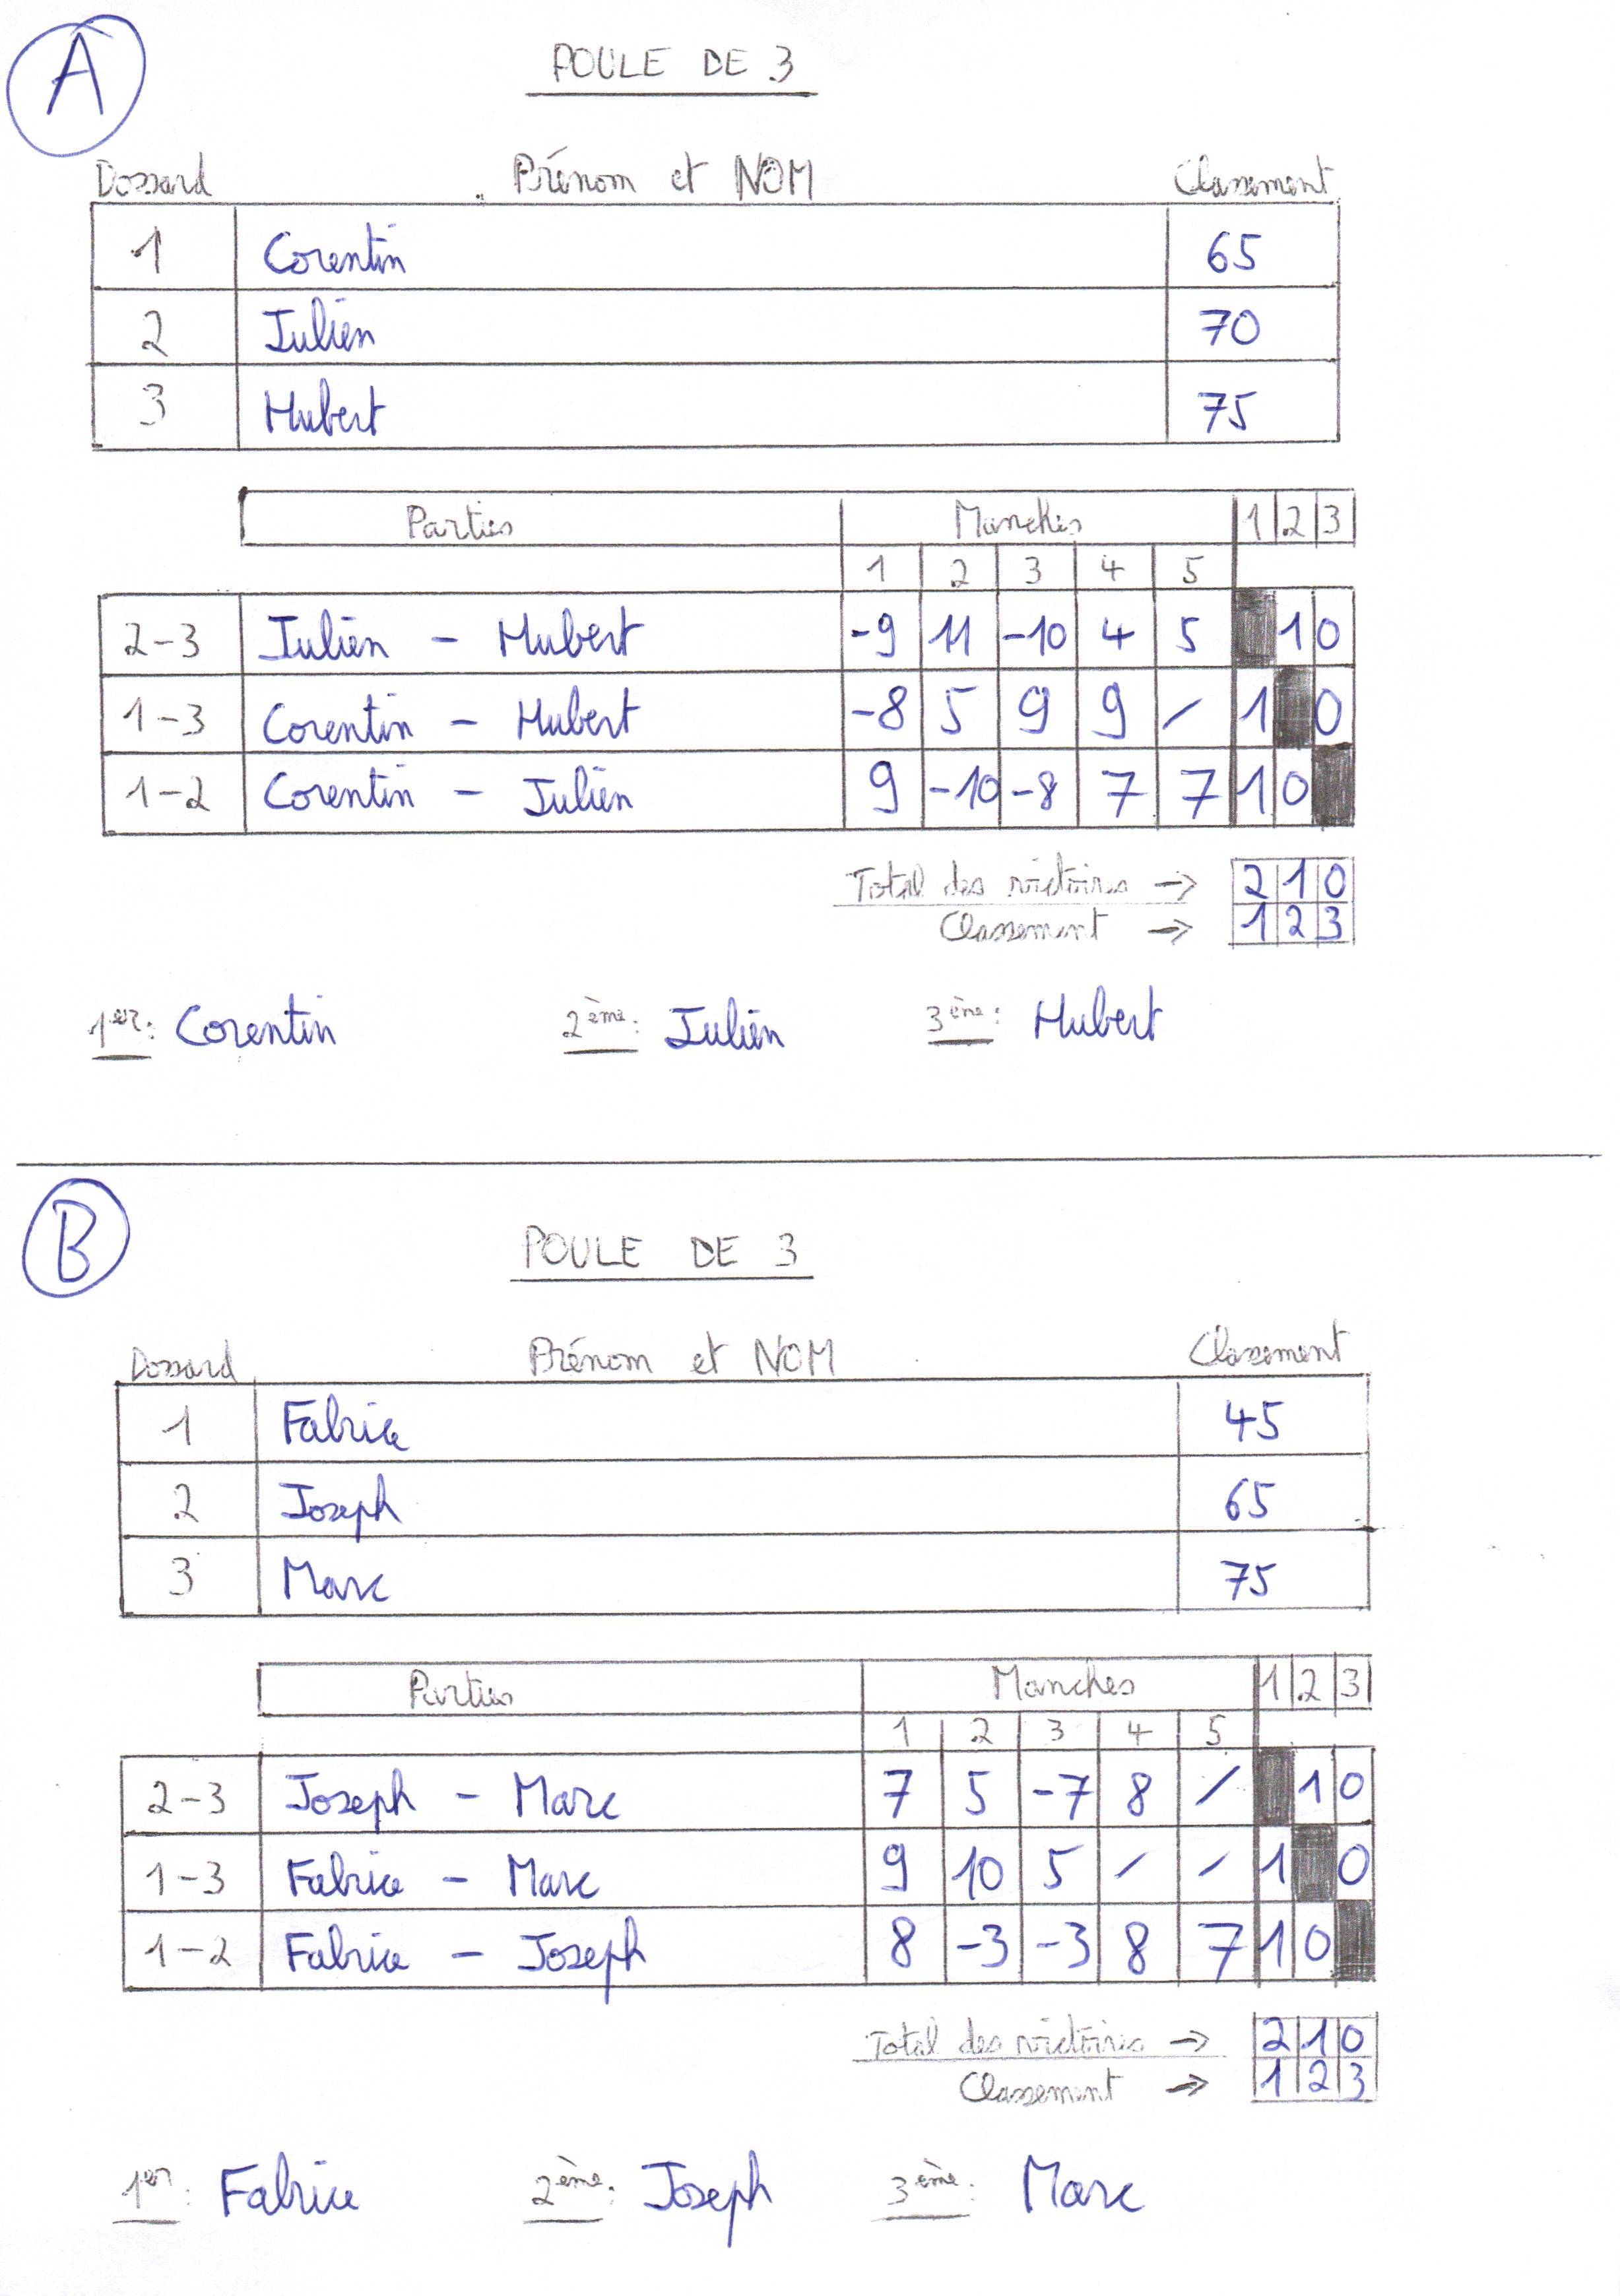 A
POULE DE 3
Dossard Prénom et NOM Classement
1 Corentin 65
2 Julien 70
3 Hubert 75
Parties Manches 1 2 3
1 2 3 4 5
2-3 Julien - Hubert -9 11 -10 4 5 1 0
1-3 Corentin - Hubert -8 5 9 9 / 1 0
1-2 Corentin - Julien 9 -10 -8 7 7 1 0
Total des victoires → 2 1 0
Classement → 1 2 3
1er: Corentin 2ème: Julien 3ème: Hubert
B
POULE DE 3
Dossard Prénom et NOM Classement
1 Fabrice 45
2 Joseph 65
3 Marc 75
Parties Manches 1 2 3
1 2 3 4 5
2-3 Joseph - Marc 7 5 -7 8 / 1 0
1-3 Fabrice - Marc 9 10 5 / / 1 0
1-2 Fabrice - Joseph 8 -3 -3 8 7 1 0
Total des victoires → 2 1 0
Classement → 1 2 3
1er: Fabrice 2ème: Joseph 3ème: Marc